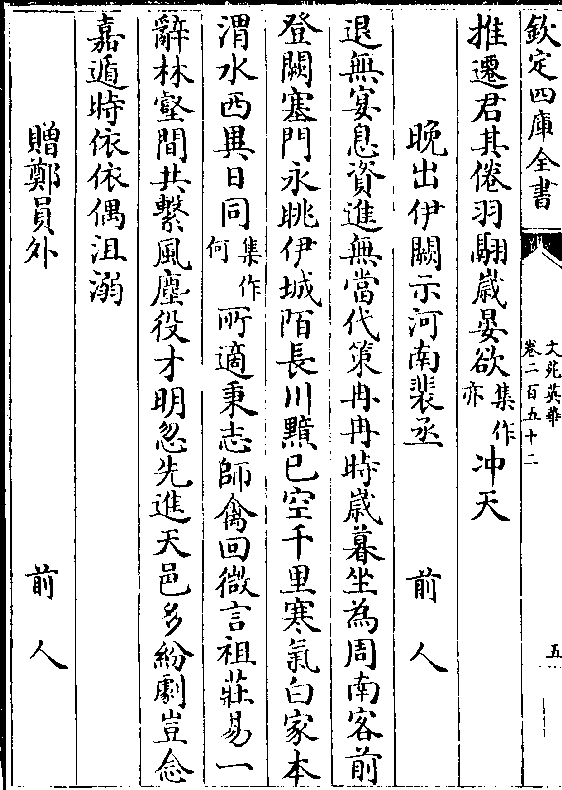 欽定四庫全書
文苑英華
卷二百五十二
五
推遷君其倦羽翮歳晏欲集作亦冲天
晚出伊闕示河南裴丞 前人
退無宴息資進無當代策冉冉時歳暮坐為周南客前
登闕塞門永眺伊城陌長川黯已空千里寒氣白家本
渭水西異日同集作何所適秉志師禽回微言祖莊易一
辭林壑間共繫風塵役才明忽先進天邑多紛劇豈念
嘉遁時依依偶沮溺
贈鄭員外 前人